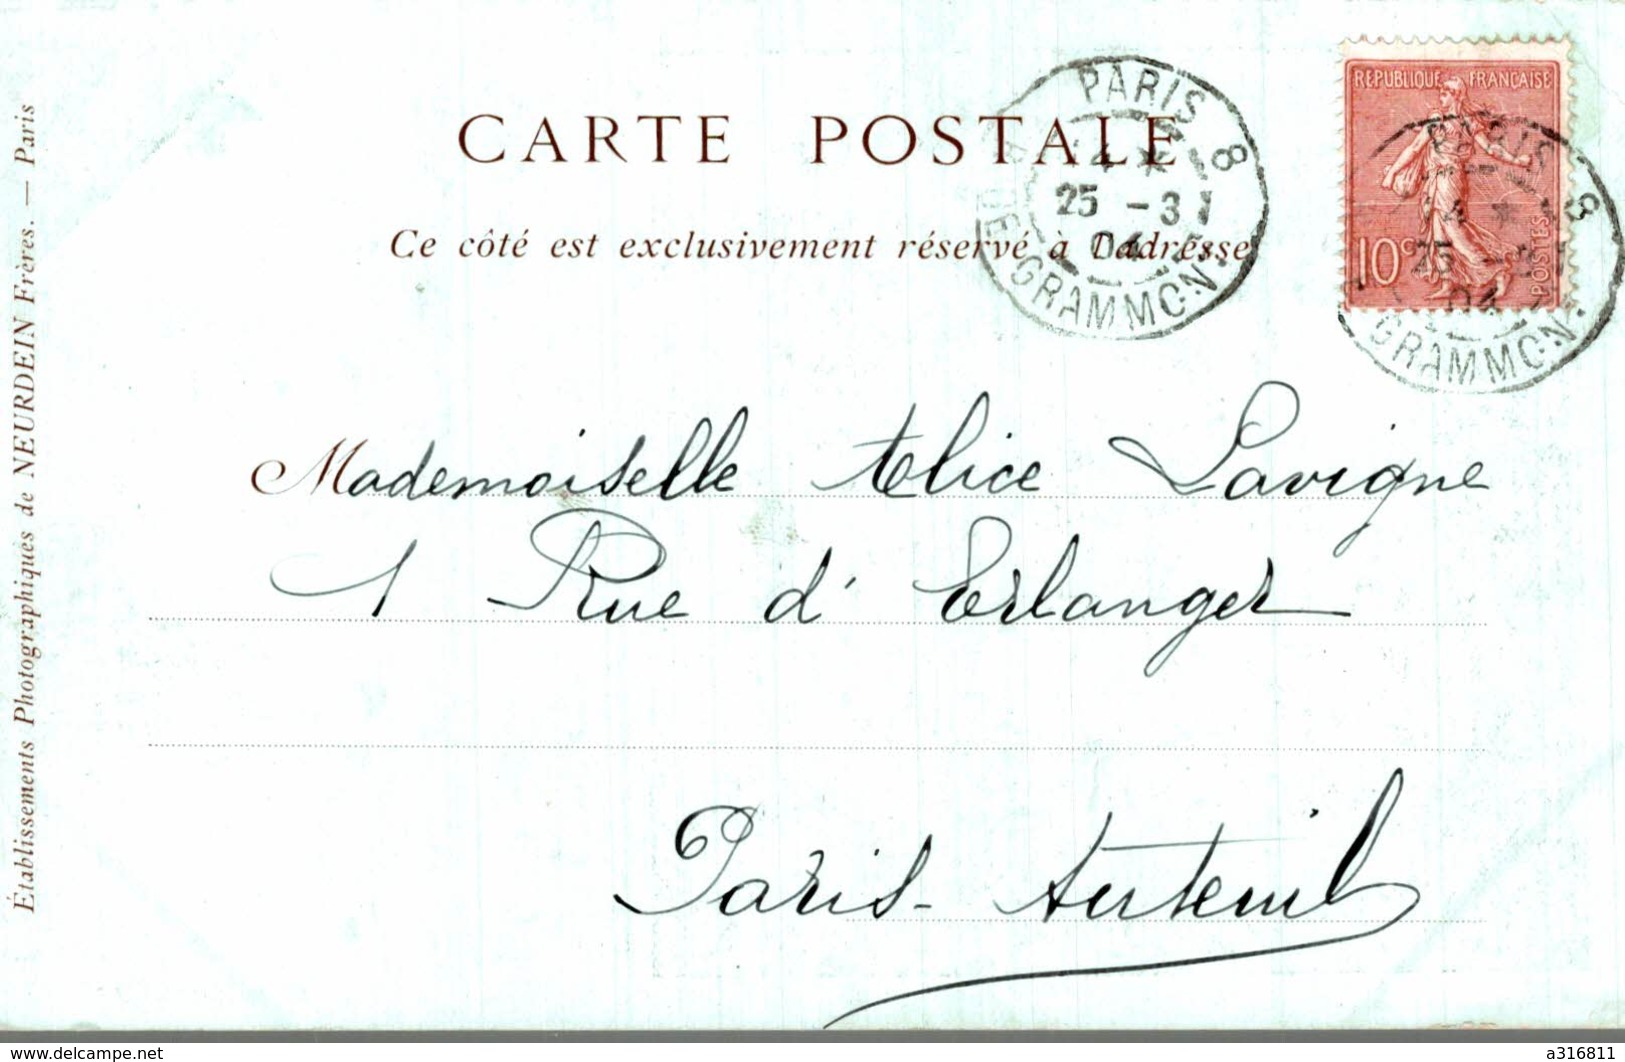 CARTE POSTALE
Ce côté est exclusivement réservé à l'adresse
Établissements Photographiques de NEURDEIN Frères. — Paris
PARIS 8
4 * 
25 - 3
04
DE GRAMMONT
REPUBLIQUE FRANÇAISE
10c
POSTES
PARIS 8
4 *
25
04
GRAMMONT
Mademoiselle Alice Lavigne
1 Rue d'Erlanger
Paris-Auteuil
www.delcampe.net
a316811